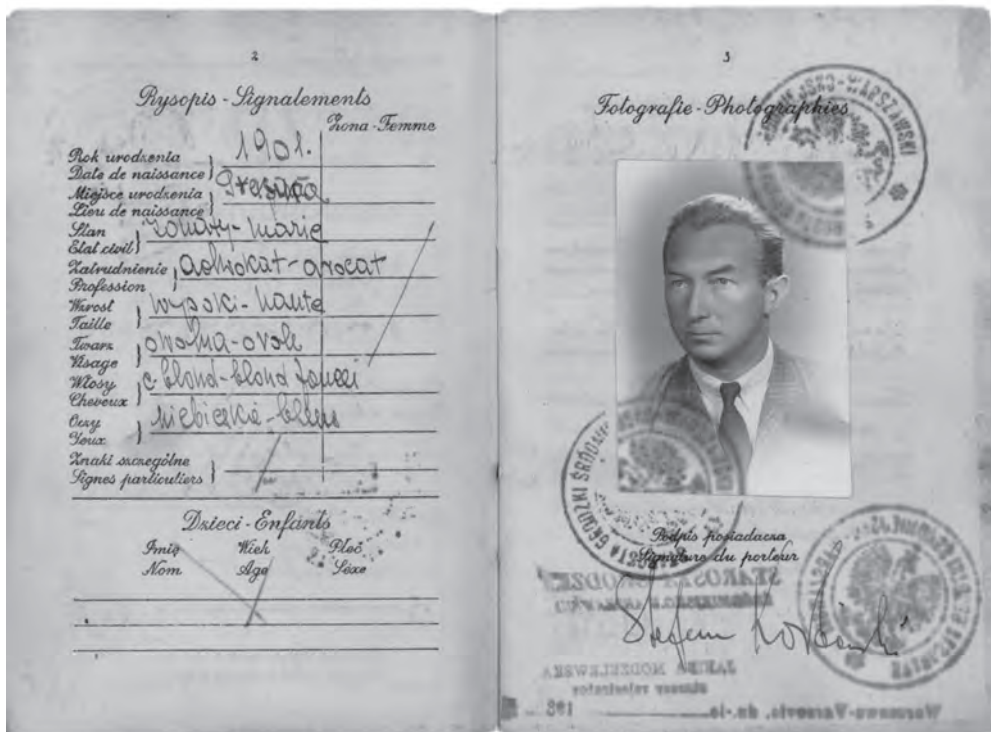 2
Rysopis - Signalements
Żona - Femme
Rok urodzenia
Date de naissance } 1901.
Miejsce urodzenia
Lieu de naissance }
Stan
Etat civil } żonaty - marié
Zatrudnienie
Profession } adwokat - avocat
Wzrost
Taille } wysoki - haute
Twarz
Visage } owalna - oval
Włosy
Cheveux } c. blond - blond
Oczy
Yeux } niebieskie - bleus
Znaki szczególne
Signes particuliers }
Dzieci - Enfants
Imię Wiek Płeć
Nom Age Sexe
3
Fotografie - Photographies
Podpis posiadacza
Signature du porteur
STAROSTA GRODZKI
JANINA MODZELEWSKA
Warszawa-Varsovie, dn.-le 193